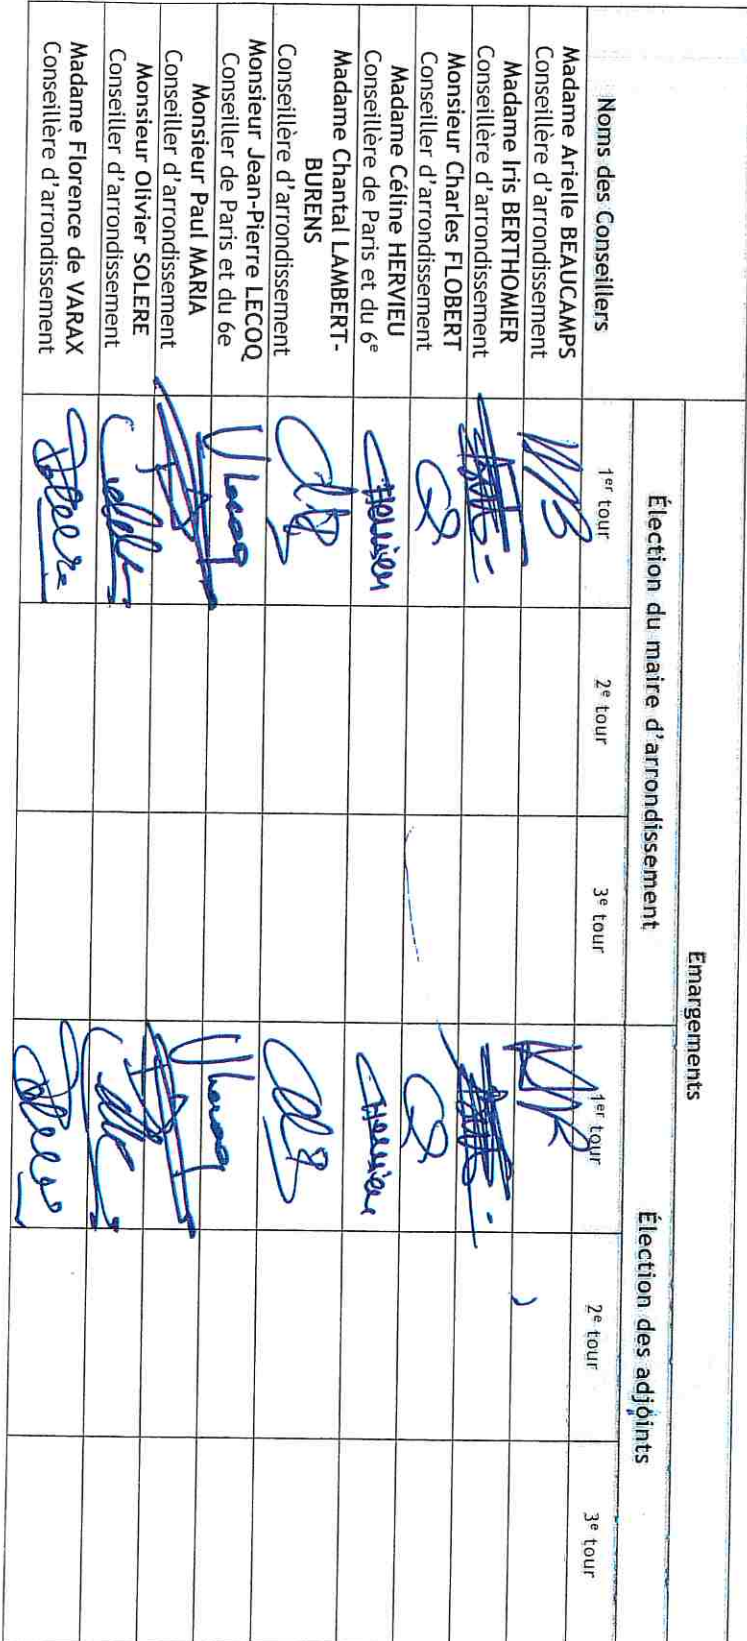 Emargements
Noms des Conseillers
Élection du maire d'arrondissement
Élection des adjoints
1er tour
2e tour
3e tour
1er tour
2e tour
3e tour
Madame Arielle BEAUCAMPS
Conseillère d'arrondissement
Madame Iris BERTHOMIER
Conseillère d'arrondissement
Monsieur Charles FLOBERT
Conseiller d'arrondissement
Madame Céline HERVIEU
Conseillère de Paris et du 6e
Madame Chantal LAMBERT-
BURENS
Conseillère d'arrondissement
Monsieur Jean-Pierre LECOQ
Conseiller de Paris et du 6e
Monsieur Paul MARIA
Conseiller d'arrondissement
Monsieur Olivier SOLERE
Conseiller d'arrondissement
Madame Florence de VARAX
Conseillère d'arrondissement